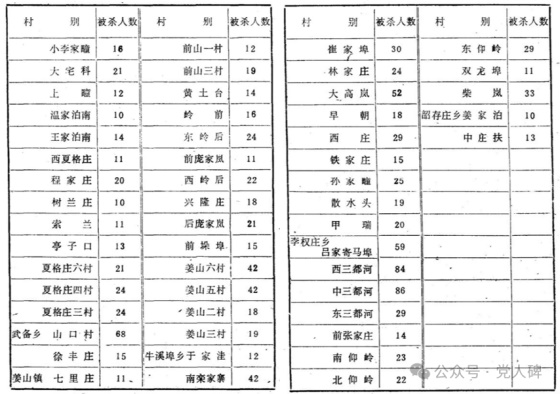 村 别 被杀人数 村 别 被杀人数
小李家疃 16 前山一村 12
大宅科 21 前山三村 19
上疃 12 黄土台 14
温家泊南 10 岭前 16
王家泊南 14 东岭后 24
西夏格庄 11 前庞家岚 11
程家庄 20 西岭后 22
树兰庄 10 兴隆庄 18
索兰 11 后庞家岚 21
亭子口 13 前垛埠 15
夏格庄六村 21 姜山六村 42
夏格庄四村 24 姜山五村 42
夏格庄三村 24 姜山二村 18
武备乡 山口村 68 姜山三村 19
徐丰庄 15 牛溪埠乡于家洼 12
姜山镇 七里庄 11 南栾家寨 42
村 别 被杀人数 村 别 被杀人数
崔家埠 30 东仰岭 29
林家庄 24 双龙埠 11
大高岚 52 柴岚 33
早朝 18 韶存庄乡姜家泊 10
西庄 29 中庄扶 13
铁家庄 15
孙家疃 25
散水头 19
甲瑞 20
李权庄乡
吕家寄马埠 59
西三都河 84
中三都河 86
东三都河 29
前张家庄 14
南仰岭 23
北仰岭 22
公众号·党人碑